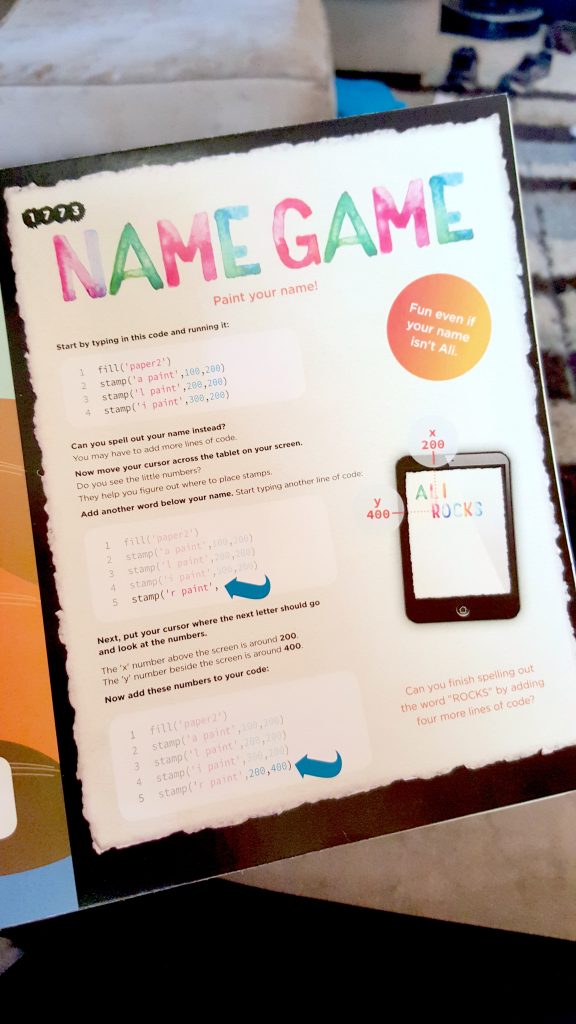 1223
NAME GAME
Paint your name!
Fun even if
your name
isn't Ali.
Start by typing in this code and running it:
1 fill('paper2')
2 stamp('a paint',100,200)
3 stamp('l paint',200,200)
4 stamp('i paint',300,200)
Can you spell out your name instead?
You may have to add more lines of code.
Now move your cursor across the tablet on your screen.
Do you see the little numbers?
They help you figure out where to place stamps.
Add another word below your name. Start typing another line of code:
1 fill('paper2')
2 stamp('a paint',100,200)
3 stamp('l paint',200,200)
4 stamp('i paint',300,200)
5 stamp('r paint',
x
200
y
400
ALI
ROCKS
Next, put your cursor where the next letter should go
and look at the numbers.
The 'x' number above the screen is around 200.
The 'y' number beside the screen is around 400.
Now add these numbers to your code:
1 fill('paper2')
2 stamp('a paint',100,200)
3 stamp('l paint',200,200)
4 stamp('i paint',300,200)
5 stamp('r paint',200,400)
Can you finish spelling out
the word "ROCKS" by adding
four more lines of code?